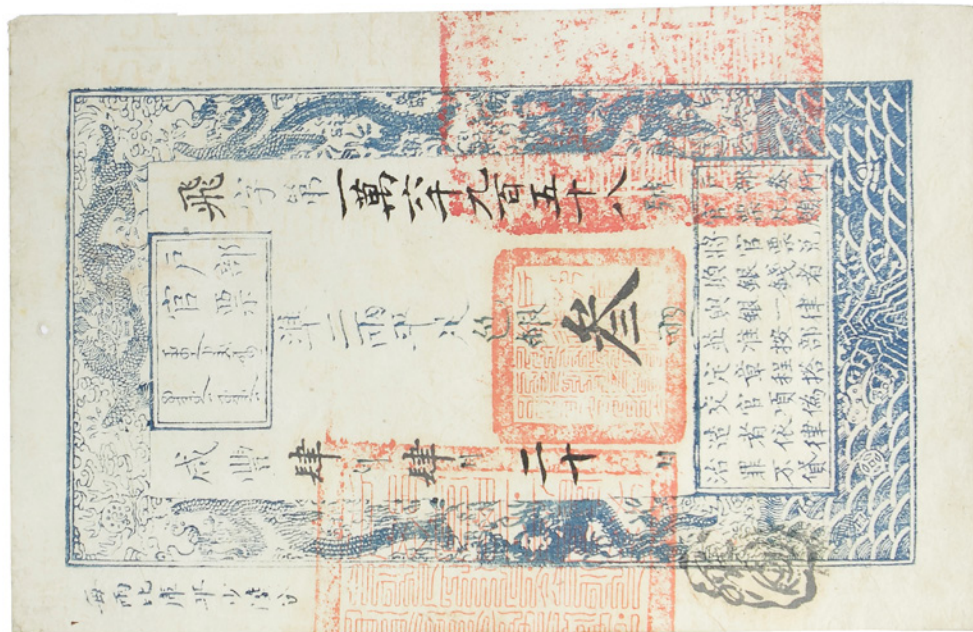 戶部
官票
飛字第一萬六千九百五十八號
準二兩平足色銀叁兩
咸豐肆年肆月二十日
戶部奏行
官票凡願
將官票兌
換銀錢者
與銀一律
並准按部
定章程搭
交官項偽
造者依律
治罪不貸
每兩比庫平少陸分